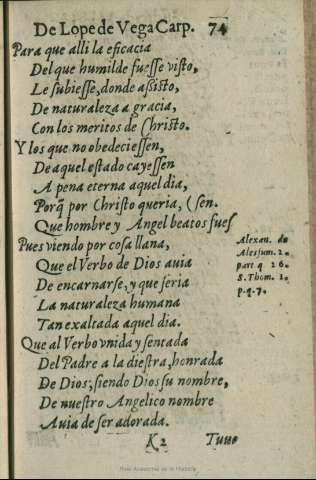 De Lope de Vega Carp. 74
Para que alli la eficacia
Del que humilde fuesse visto,
Le subiesse, donde assisto,
De naturaleza a gracia,
Con los meritos de Christo.
Y los que no obedeciessen,
De aquel estado cayessen
A pena eterna aquel dia,
Porq̃ por Christo queria, (sen.
Que hombre y Angel beatos fues
Pues viendo por cosa llana,
Que el Verbo de Dios auia
De encarnarse, y que seria
La naturaleza humana
Tan exaltada aquel dia.
Que al Verbo vnida y sentada
Del Padre a la diestra, honrada
De Dios, siendo Dios su nombre,
De nuestro Angelico nombre
Auia de ser adorada.
Alexan. de
Alesium. 2.
part q 26.
S. Thom. 1.
p. q. 7.
K 2 Tuue
Real Academia de la Historia